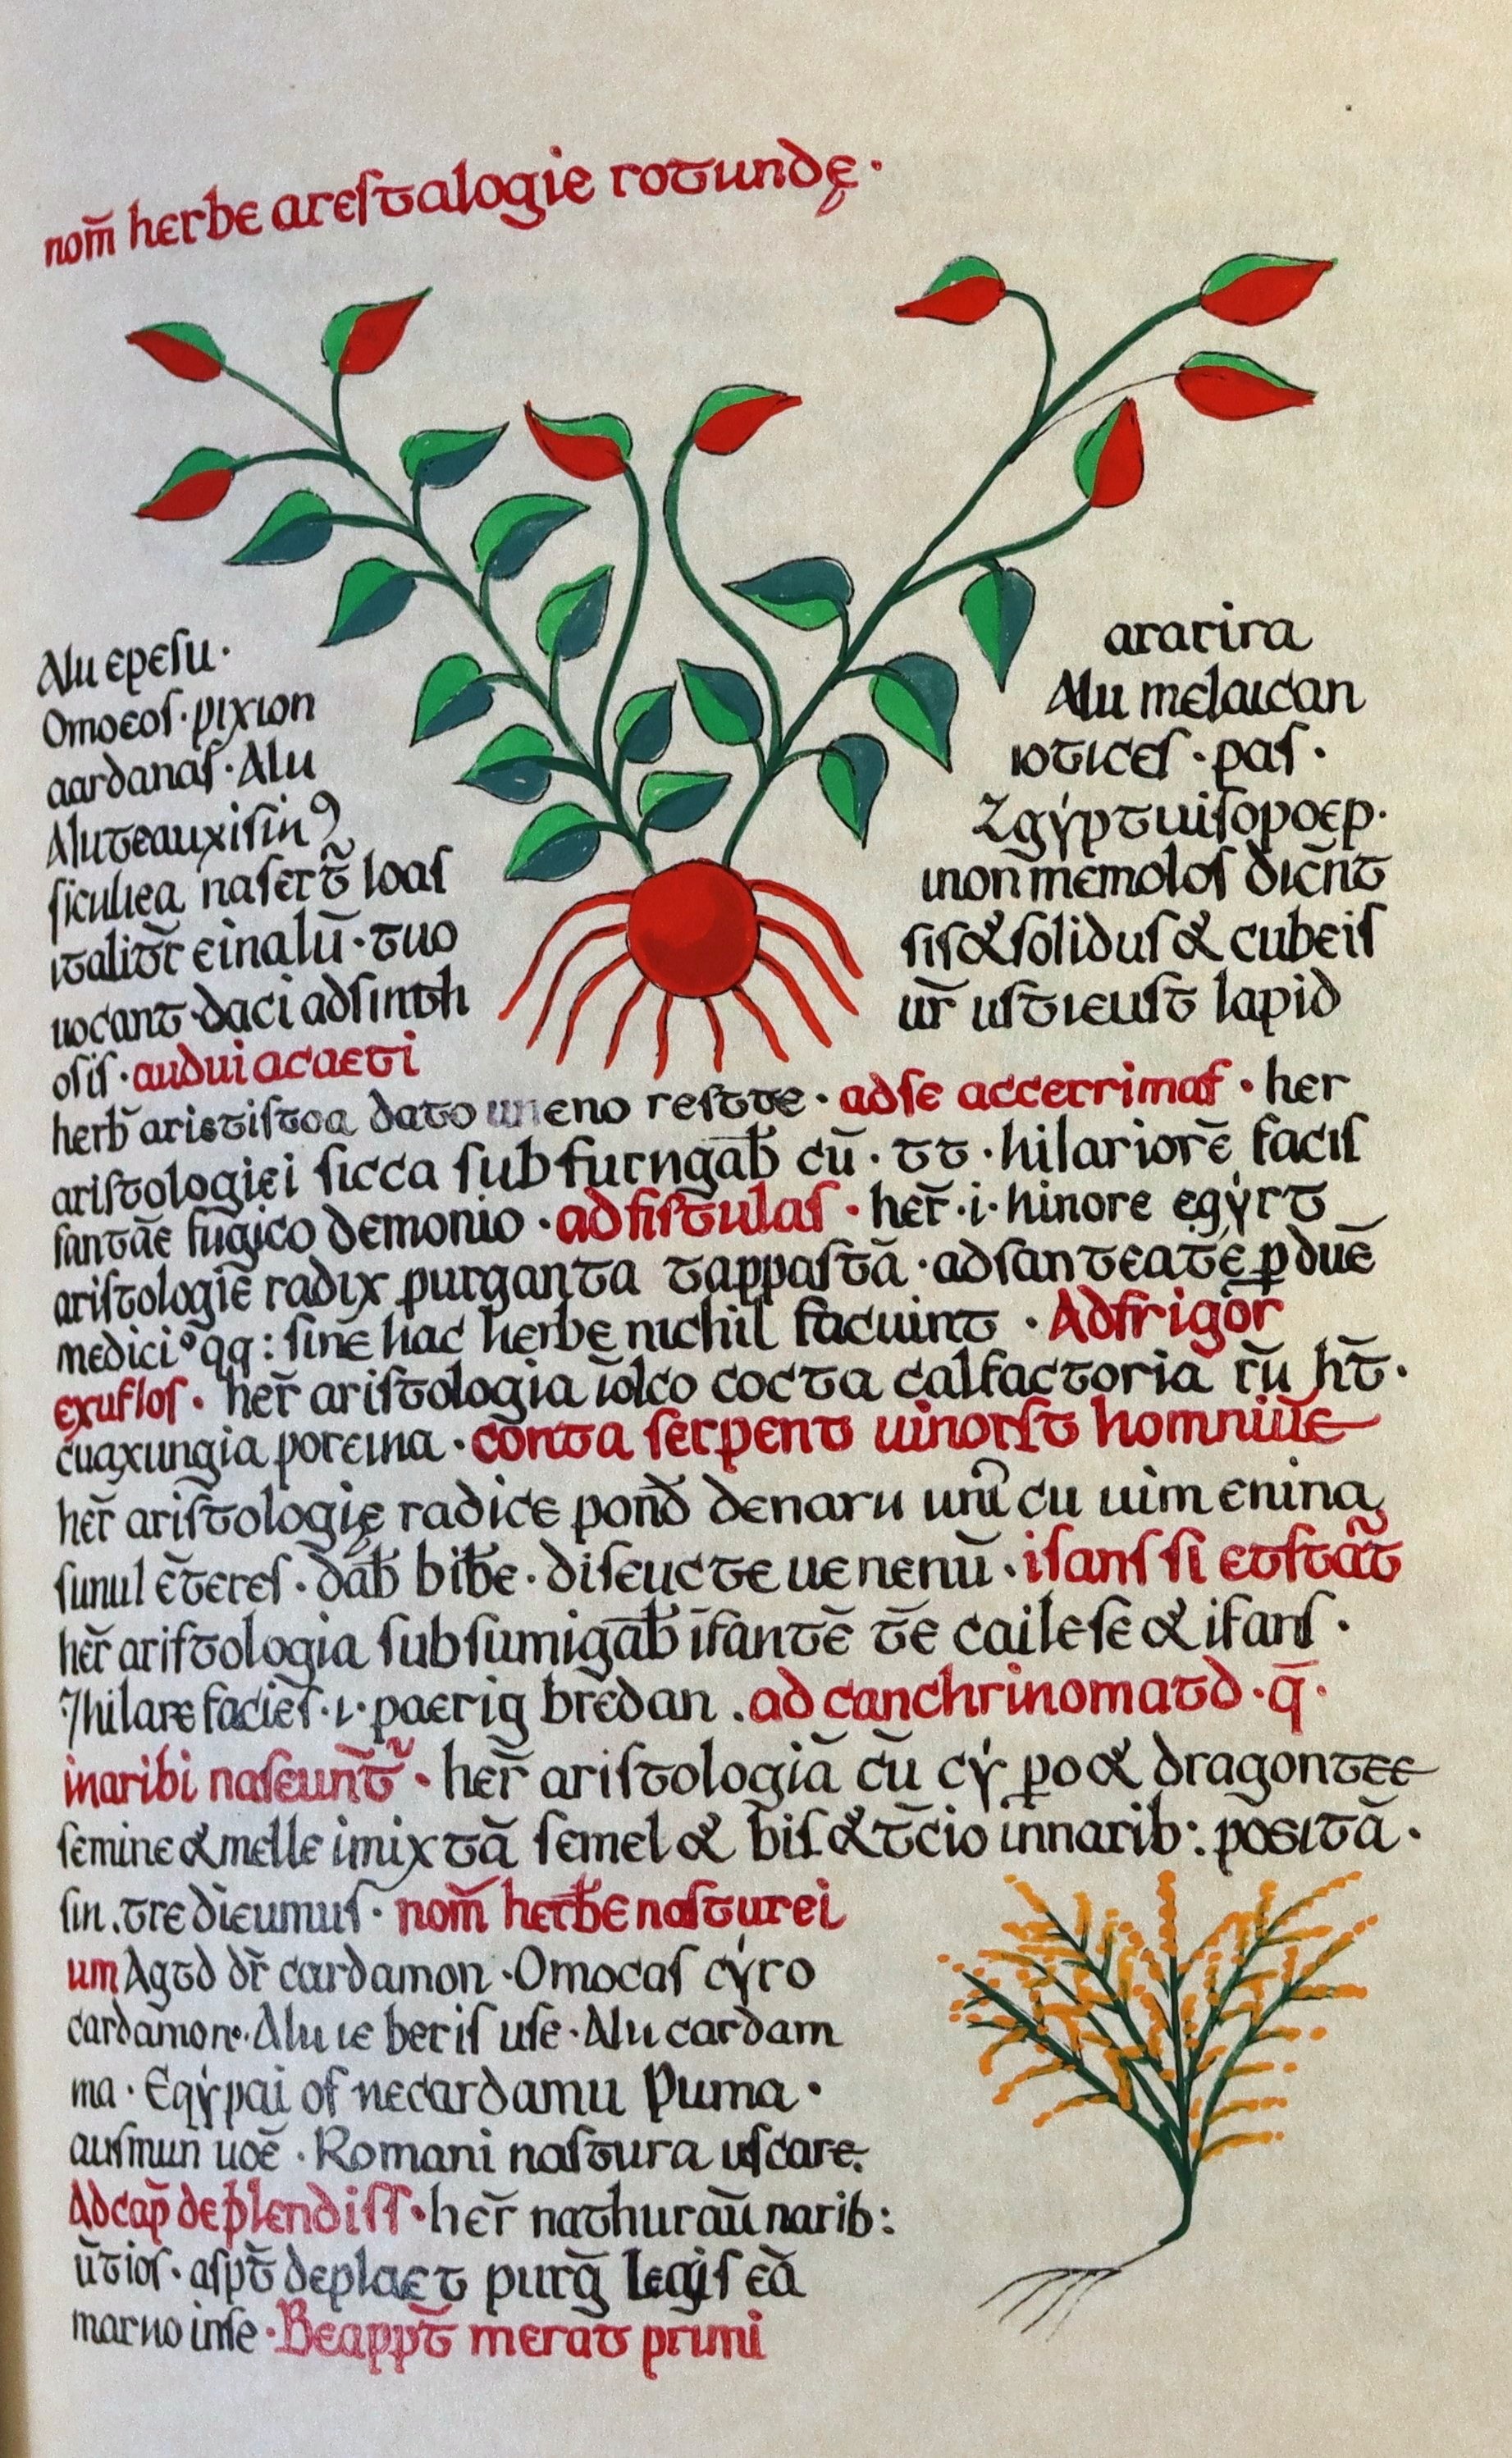 nom̄ herbe areſtalogie rotundę·
Alii epeſu·
Omoeoſ·pixion
aardanaſ·Alii
Aluteauxiſin
ſiculiea naſert̄ loaſ
italit̄r einalū·tuo
uocant·daci adſinth
oſiſ·auduiacaeti
ararira
Alii melaican
ioticeſ·paſ·
Zgẏptuiſopoep·
inon̄memoloſ dicn̄t
ſiſ&ſoliduſ & cubeiſ
ur̄ uſtieuſt lapid
herb̄ ariſtiſtoa dato uneno reſtte·adſe accerrimaſ·her
ariſtologiei ſicca ſubfurngab̄ cū·tt·hilariorē faciſ
fantāe fugico demonio·adfiſtulaſ·her̄·i·hinore egẏrt
ariſtologiē radix purganta tappaſtā·adſanteatē p duē
medici°qq:ſinē hac herbe nichil facuint·Adfrigor̄
exufloſ·her̄ ariſtologia iolco cocta calfactoria rū ht̄·
cuaxungia porcina·conta ſerpent uinorſt homniūe
her̄ ariſtologię radice pond̄ denaru uni cu uim enina
ſunul ēt̄ereſ·dab̄ bibe·diſeucte uenenū·iſanſ ſi etſtāt
her̄ ariſtologia ſubſumigab̄ īfantē tē caileſe & ifanſ·
⁊hilare facieſ·i·paerig bredan.ad canchrinomatd·q̄·
inaribi naſeunt̄·her̄ ariſtologiā cū cẏ po& dragontee
ſemine&melle imixtā ſemel& biſ&t̄cio innarib:poſitā·
ſin.tre dieumuſ·nom̄ herbe naſturei
um Agtd dr̄ cardamon·Omocaſ cẏro
cardamone·Alii ie beriſ uſe·Alii cardam
ma·Egẏpai of necardamu Puma·
auſmun uoē·Romani naſtura uſcare·
Adcap̄ deplendiſſ·her̄ nathuraū narib:
ūtioſ·aſpt̄ deplaet purḡ legiſ eā
maruo inſe·Beappt̄ merats primi